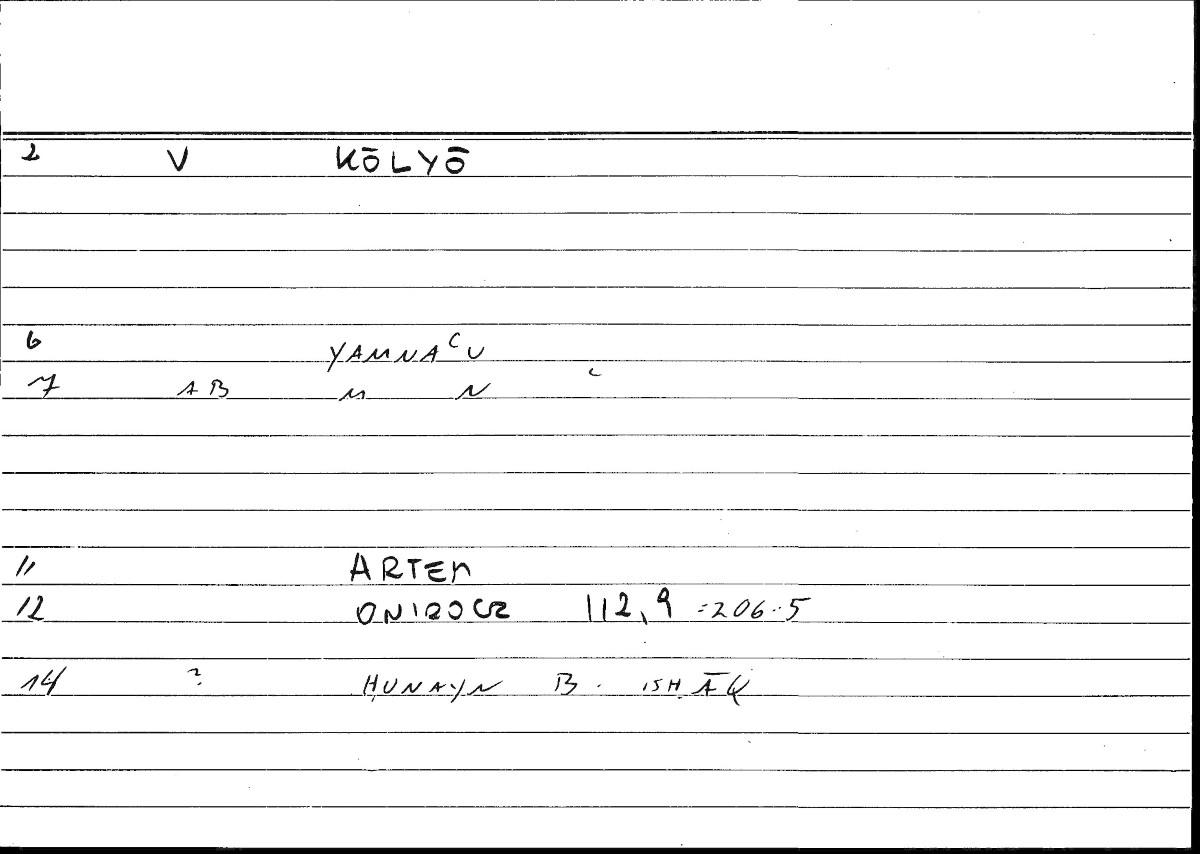 2 V KŌLYŌ
6 YAMNAʿU
7 AB M N ʿ
11 ARTEM
12 ONIROCR 112,9 =206.5
14 ? ḤUNAYN B. ISḤĀQ